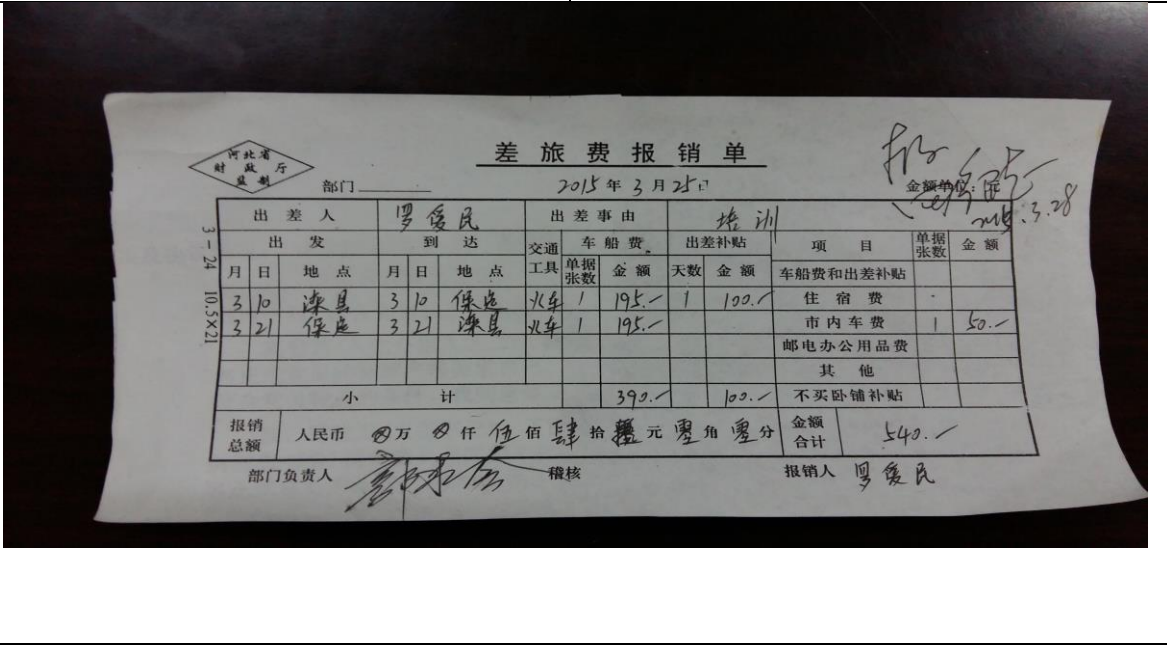 河北省
财政厅
监制
差旅费报销单
部门 2015年3月25日 金额单位：元
2015.3.28
3－24 10.5×21
出差人 罗爱民 出差事由 培训
出发 到达 交通工具 车船费 出差补贴 项目 单据张数 金额
月 日 地点 月 日 地点 单据张数 金额 天数 金额 车船费和出差补贴
3 10 滦县 3 10 保定 火车 1 195.- 1 100.- 住宿费
3 21 保定 3 21 滦县 火车 1 195.- 市内车费 1 50.-
邮电办公用品费
其他
小计 390.- 100.- 不买卧铺补贴
报销总额 人民币 ⊗万 ⊗仟 伍佰 肆拾 零元 零角 零分 金额合计 540.-
部门负责人 稽核 报销人 罗爱民